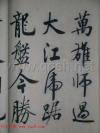 萬雄師過
大江虎踞
龍盤今勝